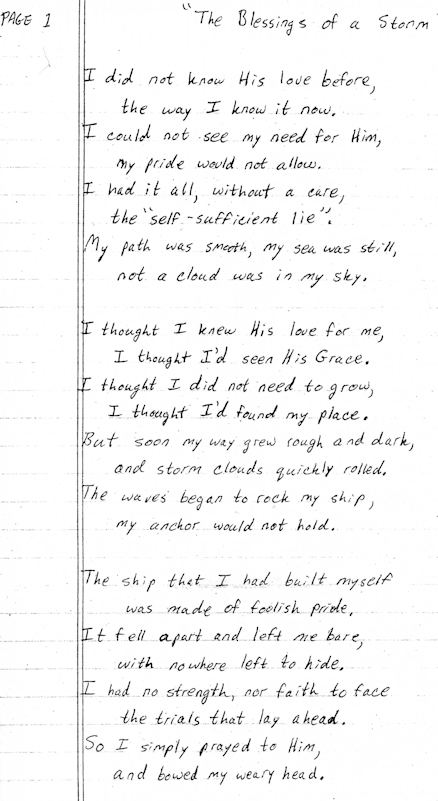 PAGE 1
"The Blessings of a Storm
I did not know His love before,
the way I know it now.
I could not see my need for Him,
my pride would not allow.
I had it all, without a care,
the "self-sufficient lie".
My path was smooth, my sea was still,
not a cloud was in my sky.
I thought I knew His love for me,
I thought I'd seen His Grace.
I thought I did not need to grow,
I thought I'd found my place.
But soon my way grew rough and dark,
and storm clouds quickly rolled.
The waves began to rock my ship,
my anchor would not hold.
The ship that I had built myself
was made of foolish pride.
It fell apart and left me bare,
with nowhere left to hide.
I had no strength, nor faith to face
the trials that lay ahead.
So I simply prayed to Him,
and bowed my weary head.